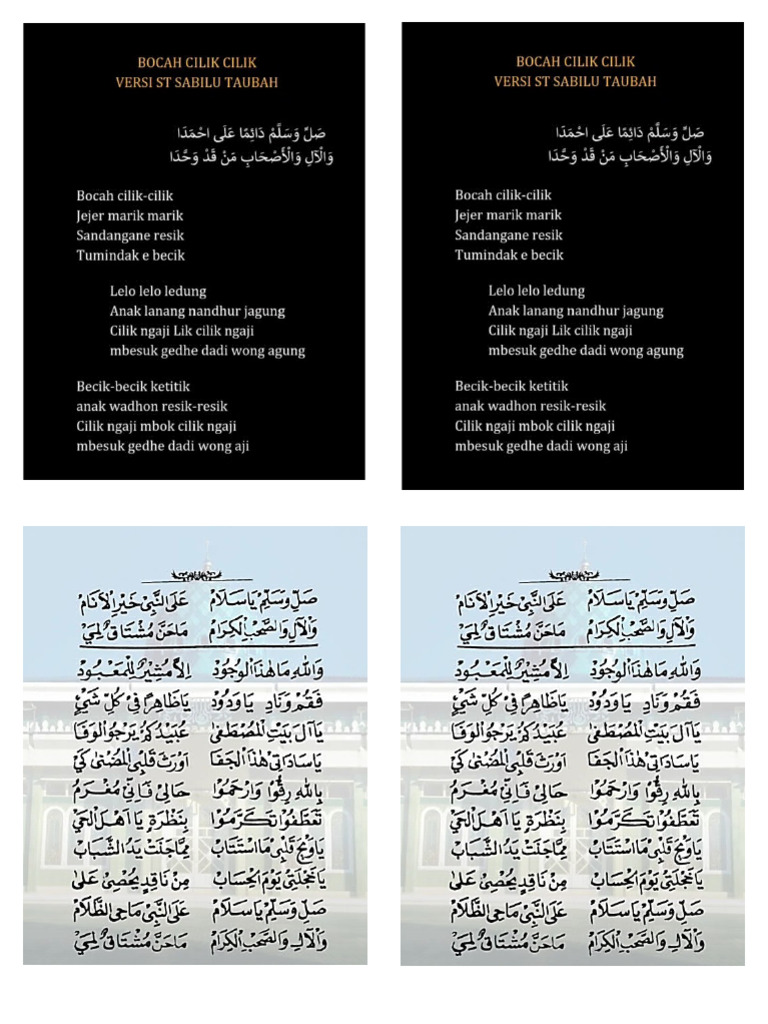 BOCAH CILIK CILIK
VERSI ST SABILU TAUBAH
صَلِّ وَسَلِّمْ دَائِمًا عَلَى احْمَدَا
وَالْآلِ وَالْأَصْحَابِ مَنْ قَدْ وَحَّدَا
Bocah cilik-cilik
Jejer marik marik
Sandangane resik
Tumindak e becik
Lelo lelo ledung
Anak lanang nandhur jagung
Cilik ngaji Lik cilik ngaji
mbesuk gedhe dadi wong agung
Becik-becik ketitik
anak wadhon resik-resik
Cilik ngaji mbok cilik ngaji
mbesuk gedhe dadi wong aji
BOCAH CILIK CILIK
VERSI ST SABILU TAUBAH
صَلِّ وَسَلِّمْ دَائِمًا عَلَى احْمَدَا
وَالْآلِ وَالْأَصْحَابِ مَنْ قَدْ وَحَّدَا
Bocah cilik-cilik
Jejer marik marik
Sandangane resik
Tumindak e becik
Lelo lelo ledung
Anak lanang nandhur jagung
Cilik ngaji Lik cilik ngaji
mbesuk gedhe dadi wong agung
Becik-becik ketitik
anak wadhon resik-resik
Cilik ngaji mbok cilik ngaji
mbesuk gedhe dadi wong aji
صَلِّ وَسَلِّمْ يَا سَلَامْ عَلَى النَّبِيْ خَيْرِ الْأَنَامْ
وَالْآلِ وَالصَّحْبِ الْكِرَامْ مَا حَنَّ مُشْتَاقٌ لِمَيْ
وَاللهِ مَا هٰذَا الْوُجُوْدْ اِلَّا مُشِيْرٌ لِلْمَعْبُوْدْ
فَقُمْ وَنَادِ يَا وَدُوْدْ يَا ظَاهِرًا فِيْ كُلِّ شَيْءٍ
يَا آلَ بَيْتِ الْمُصْطَفٰى عُبَيْدُكُمْ يَرْجُو الْوَفَا
يَا سَادَاتِيْ هٰذَا الْجَفَا اَوْرَثَ قَلْبِي الْمُضْنٰى كَيْ
بِاللهِ رِقُّوْا وَارْحَمُوْا حَالِيْ فَاِنِّيْ مُغْرَمُ
تَعَطَّفُوْا تَكَرَّمُوْا بِنَظْرَةٍ يَا اَهْلَ الْحَيْ
يَا وَيْحَ قَلْبِيْ مَا اسْتَتَابْ مِمَّا جَنَتْ يَدُ الشَّبَابْ
يَا خَجْلَتِيْ يَوْمَ الْحِسَابْ مِنْ نَاقِدٍ يُحْصِيْ عَلَيْ
صَلِّ وَسَلِّمْ يَا سَلَامْ عَلَى النَّبِيْ مَاحِي الظَّلَامْ
وَالْآلِ وَالصَّحْبِ الْكِرَامْ مَا حَنَّ مُشْتَاقٌ لِمَيْ
صَلِّ وَسَلِّمْ يَا سَلَامْ عَلَى النَّبِيْ خَيْرِ الْأَنَامْ
وَالْآلِ وَالصَّحْبِ الْكِرَامْ مَا حَنَّ مُشْتَاقٌ لِمَيْ
وَاللهِ مَا هٰذَا الْوُجُوْدْ اِلَّا مُشِيْرٌ لِلْمَعْبُوْدْ
فَقُمْ وَنَادِ يَا وَدُوْدْ يَا ظَاهِرًا فِيْ كُلِّ شَيْءٍ
يَا آلَ بَيْتِ الْمُصْطَفٰى عُبَيْدُكُمْ يَرْجُو الْوَفَا
يَا سَادَاتِيْ هٰذَا الْجَفَا اَوْرَثَ قَلْبِي الْمُضْنٰى كَيْ
بِاللهِ رِقُّوْا وَارْحَمُوْا حَالِيْ فَاِنِّيْ مُغْرَمُ
تَعَطَّفُوْا تَكَرَّمُوْا بِنَظْرَةٍ يَا اَهْلَ الْحَيْ
يَا وَيْحَ قَلْبِيْ مَا اسْتَتَابْ مِمَّا جَنَتْ يَدُ الشَّبَابْ
يَا خَجْلَتِيْ يَوْمَ الْحِسَابْ مِنْ نَاقِدٍ يُحْصِيْ عَلَيْ
صَلِّ وَسَلِّمْ يَا سَلَامْ عَلَى النَّبِيْ مَاحِي الظَّلَامْ
وَالْآلِ وَالصَّحْبِ الْكِرَامْ مَا حَنَّ مُشْتَاقٌ لِمَيْ